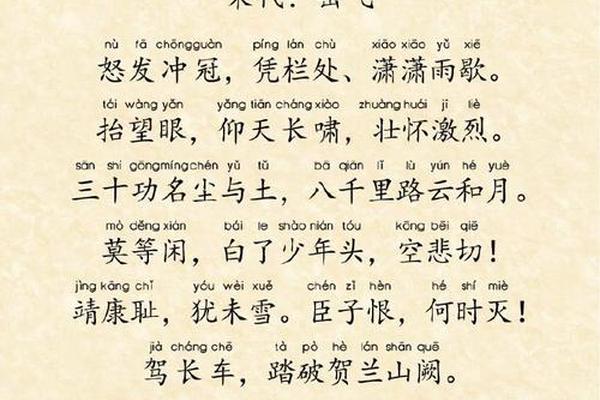 nù fā chōngguàn píng lán chù xiāo xiāo yǔ xiē
怒发冲冠，凭栏处、潇潇雨歇。
tái wàng yǎn yǎng tiān cháng xiào zhuàng huái jī liè
抬望眼，仰天长啸，壮怀激烈。
sān shí gōngmíngchén yǔ tǔ bā qiān lǐ lù yún hé yuè
三十功名尘与土，八千里路云和月。
mò děng xián bái le shào nián tóu kōng bēi qiē
莫等闲，白了少年头，空悲切！
jìng kāng chǐ yóu wèi xuě chén zǐ hèn hé shí miè
靖康耻，犹未雪。臣子恨，何时灭！
jià cháng chē tà pò hè lán shān quē
驾长车，踏破贺兰山阙。